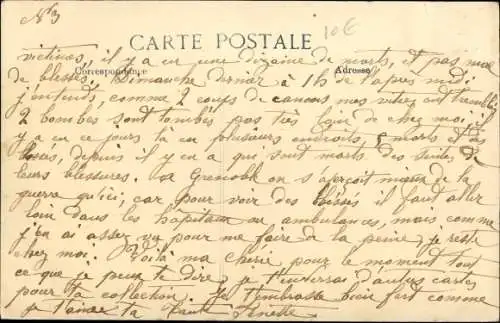 N° 3
10€
CARTE POSTALE
Correspondance
Adresse
victimes, il y a eu une dizaine de morts, et pas mal
de blessés. Dimanche dernier à 1h de l'après midi
j'entends, comme 2 coups de canons mes vitres ont tremblé
2 bombes sont tombés pas très loin de chez moi, il
y a eu ce jours là en plusieurs endroits, 5 morts et des
blessés, depuis il y en a qui sont morts des suites de
leurs blessures. a Grenoble on s'aperçoit mieux de la
guerre qu'ici, car pour voir des blessés il faut aller
loin dans les hopitaux ou ambulances, mais comme
j'en ai assez vu pour me faire de la peine, je reste
chez moi. Voilà ma cherie pour le moment tout
ce que je peux te dire, je t'enverrai d'autres cartes
pour ta collection. Je t'embrasse bien fort comme
je t'aime ta Tante